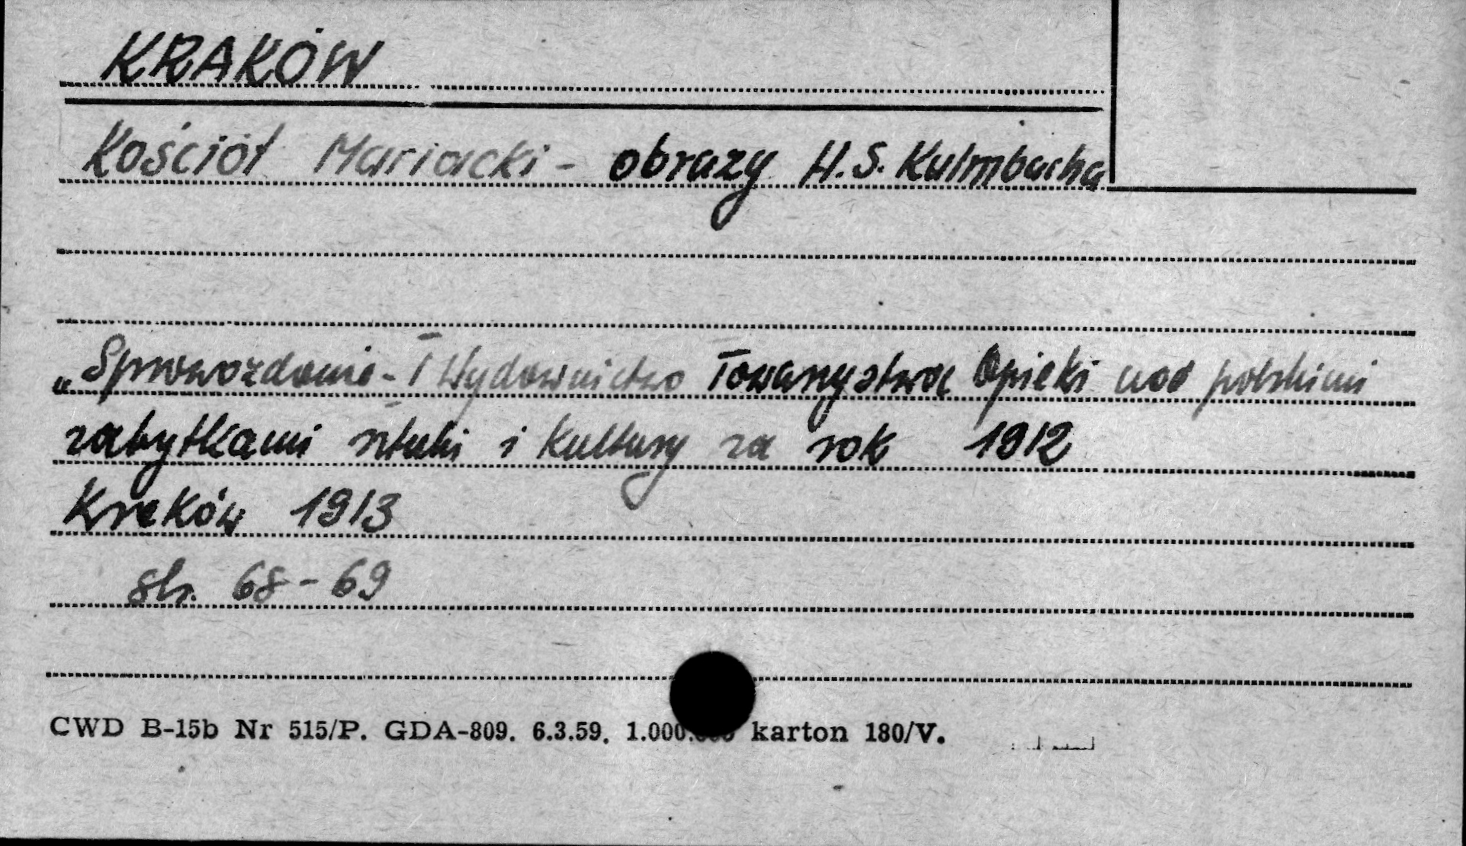 KRAKÓW
Kościół Mariacki - obrazy H.S. Kulmbacha
„Sprawozdanie - i Wydawnictwo Towarzystwa Opieki nad polskimi
zabytkami sztuki i Kultury za rok 1912
Kraków 1913
str. 68-69
CWD B-15b Nr 515/P. GDA-809. 6.3.59. 1.000.000 karton 180/V.